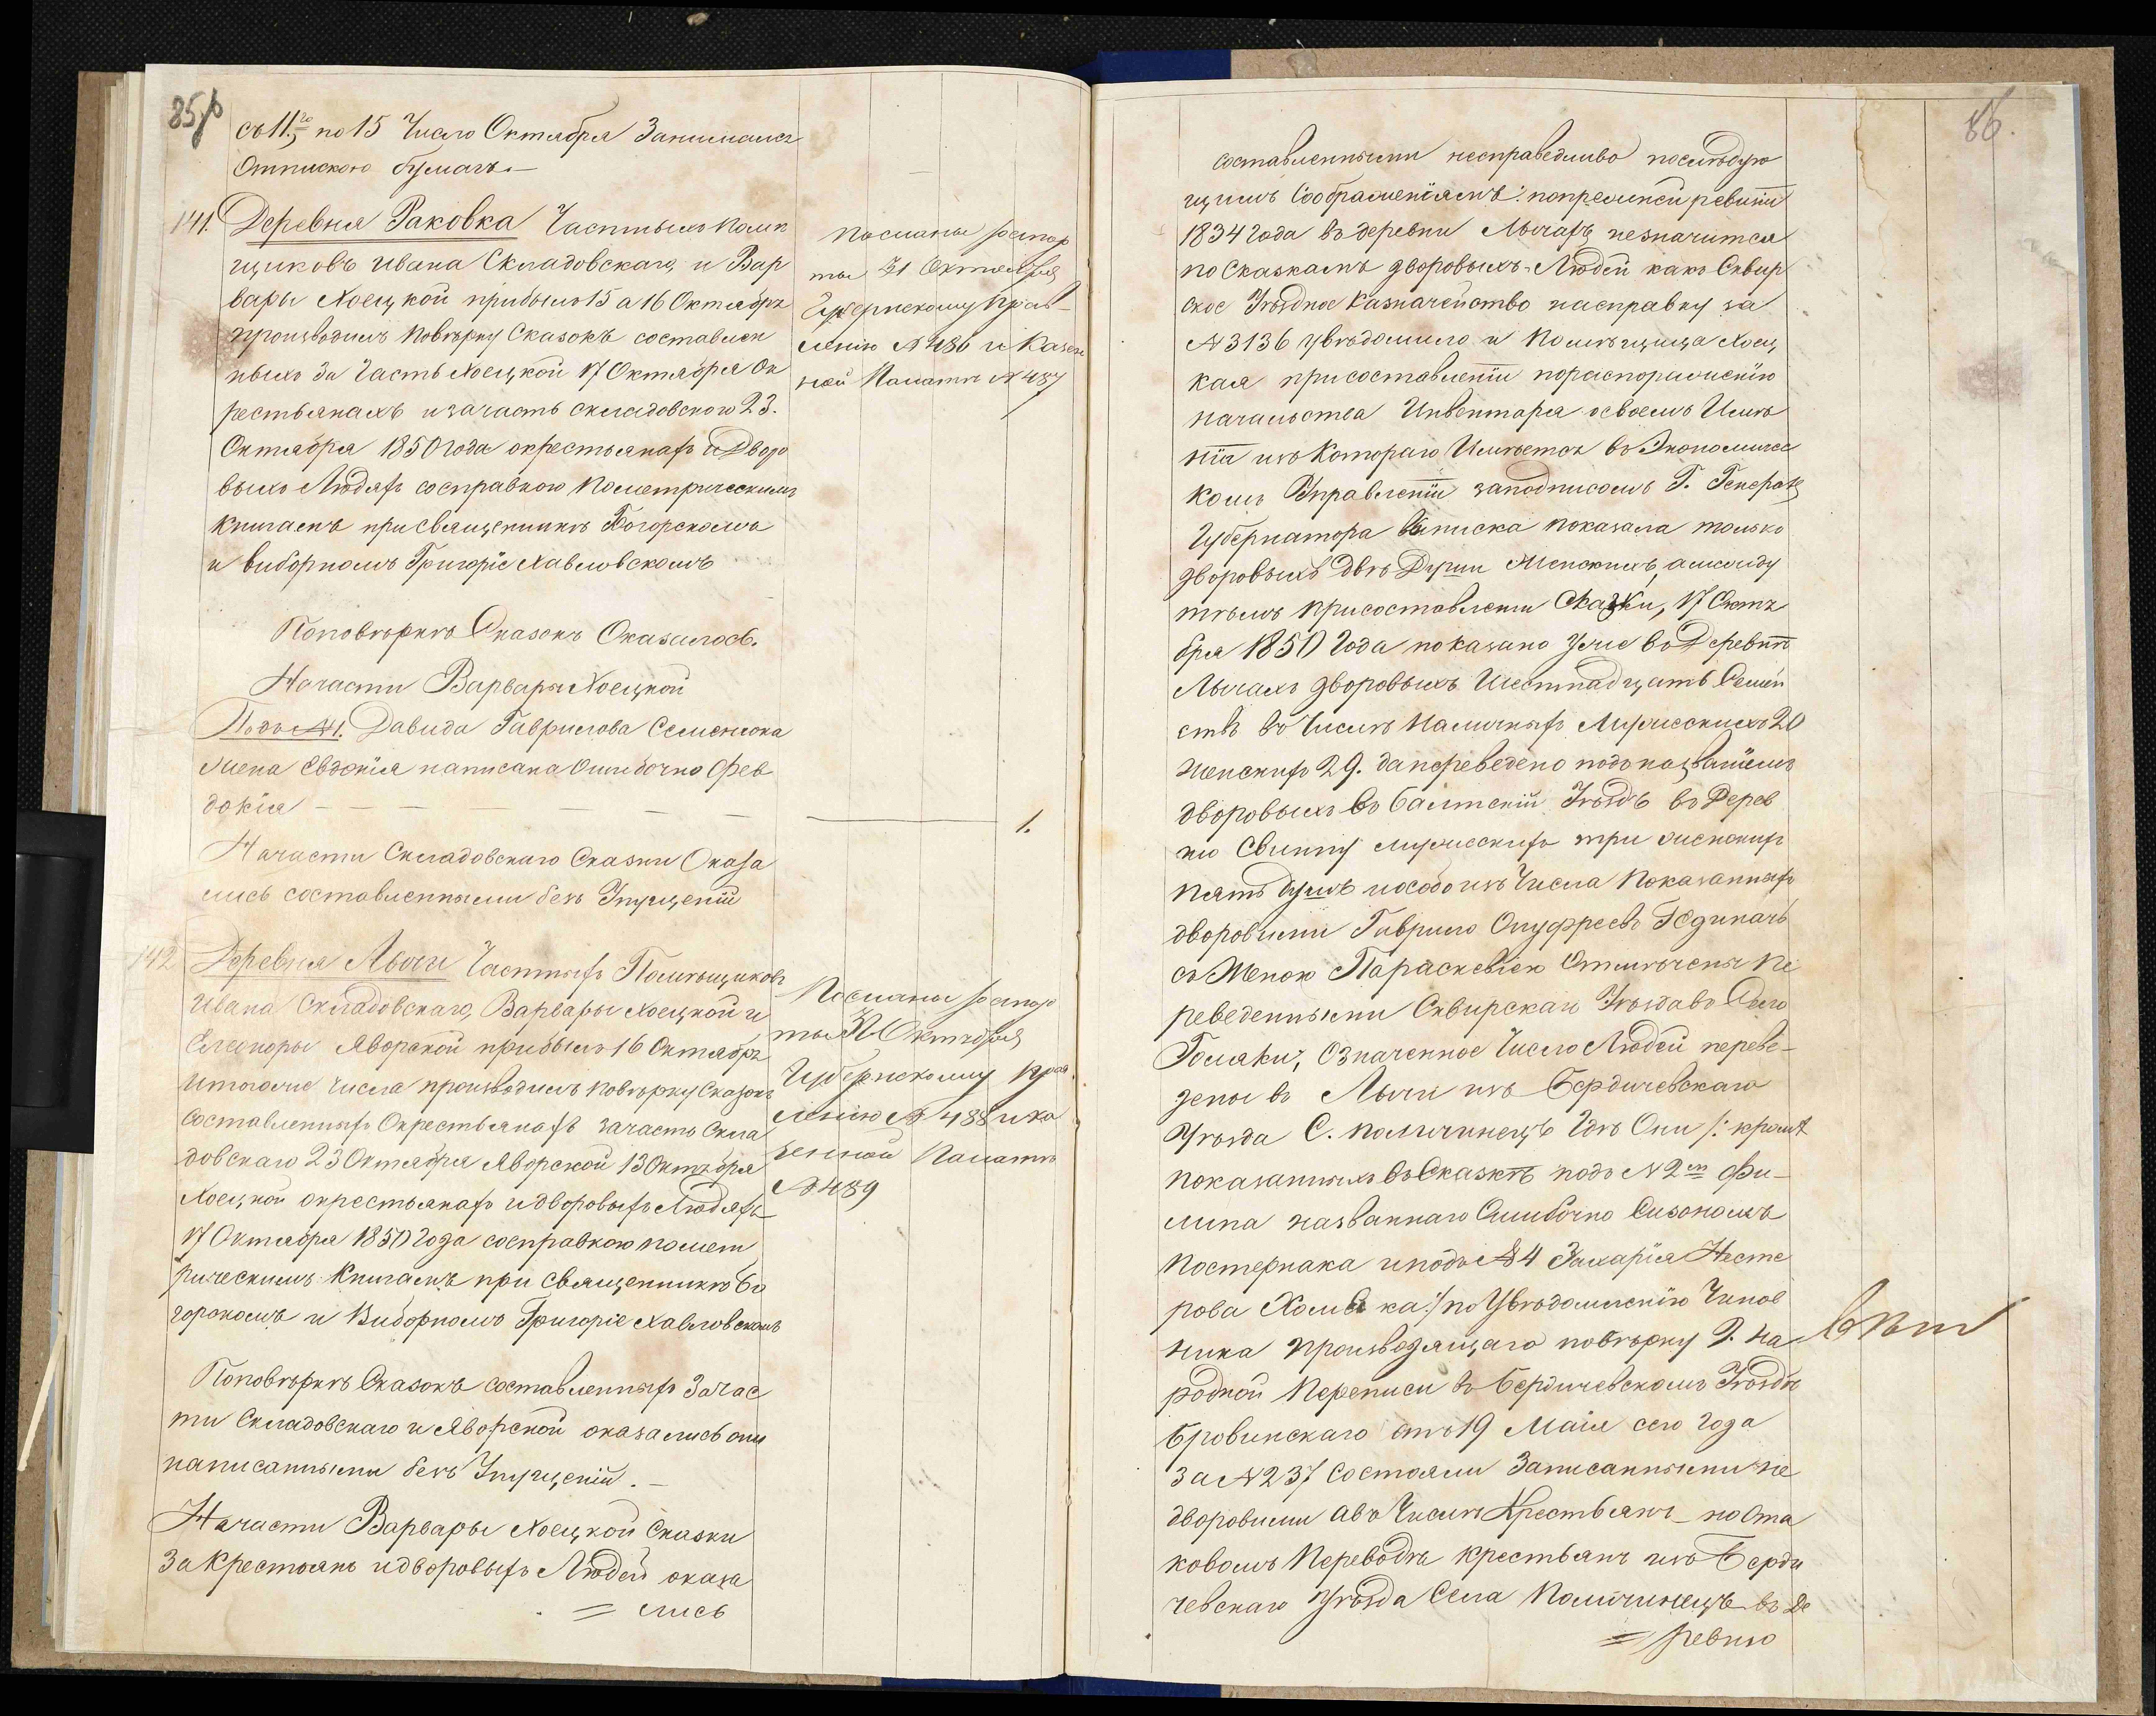 85
съ 11го по 15 Число Октября Занимался
Отпискою бумагъ. —
141. Деревня Раковка Частныхъ помѣ
щиковъ Ивана Складовскаго, и Вар
вары Хоецкой прибылъ 15 а 16 Октября
производилъ повѣрку Сказокъ составлен
ныхъ За Часть Хоецкой 17 Октября Ок
рестьянахъ и зачасть складовского 23.
Октября 1850 года окрестьянахъ и Дворо
выхъ Людяхъ сосправкою пометрическимъ
книгамъ при Священникѣ Богорскомъ
и виборномъ Григоріе Хавловскомъ
Послано рапор
ты 21 Октября
Губернскому прав
ленію №486 и Казен
ной Палатѣ №487
Поповѣркѣ Сказокъ Оказалось.
Начасти Варвары Хоецкой
Подъ №1. Давида Гаврилова Семенюка
жена Евдокія написана Ошибочно Фев
докія — — — — — 1.
Начасти Складовскаго Сказки Оказа
лись составленными безъ Упущеній
142 Деревня Лычи Частныхъ Помѣщиковъ
Ивана Складовскаго, Варвары Хоецкой и
Елеоноры Яворской прибылъ 16 Октября
итогоже числа производилъ повѣрку Сказокъ
составленныхъ Окрестьянахъ зачасть Скла
довскаго 23 Октября Яворской 13 Октября
Хоецкой окрестьянахъ идворовыхъ Людяхъ
17 Октября 1850 Года сосправкою помет
рическимъ Книгамъ при священникѣ Бо
горскомъ и Виборномъ Григоріе Хавловскомъ
Посланы рапор
ты Октября
Губернскому прав
ленію №488 и Ка
зенной Палатѣ
№489
Поповѣркѣ Сказокъ составленныхъ Зачас
ти Складовскаго и Яворской оказались они
написанными безъ Упущеній. —
Начасти Варвары Хоецкой Сказки
За Крестьянъ идворовыхъ Людей оказа
= лись
86.
составленными несправедливо послѣдую
щимъ Соображеніямъ: попрежней ревизіи
1834 года въ деревни Лычахъ незначится
по Сказкамъ дворовыхъ Людей какъ Сквир
ское Уѣздное Казначейство насправку за
№3136 увѣдомило и Помѣщица Хоец
кая присоставленіи пораспоряженію
начальства Инвентаря освоемъ Имѣ
ніи изъ Котораго Имѣется въ Экономичес
комъ Управленіи заподписомъ Г. Генерал
Губернатора выписка показала только
дворовыхъ двѣ Души Женскихъ, амежду
тѣмъ присоставлени Сказки, 17 Октя
бря 1850 Года показано уже въ Деревнѣ
Лычахъ дворовыхъ Шестнадцать Семей
ствъ въ Числѣ Наличныхъ Мужескихъ 20
женскихъ 29. да переведено подъ названіемъ
дворовыхъ въ Балтскій Уѣздъ въ Дерев
ню Свинну мужескихъ три женскихъ
пять душъ иособо изъ Числа Показанныхъ
дворовыми Гаврило Онуфреевъ
съ Женою Параскевіею Отмѣчены Пе
реведенными Сквирскаго Уѣзда въ Село
Голяки, Означенное Число Людей переве-
дены въ Лычи изъ Бердичевскаго
Уѣзда С. Поличинецъ Гдѣ Они /: кромѣ
показанныхъ въ Сказкѣ подъ №2мъ Фи-
липа названнаго Ошибочно Сизономъ
Постернака иподъ №4 Захарія Несте
рова ка:/ по Увѣдомленію Чинов
ника производящаго повѣрку 9. На
родной Переписи въ Бердичевскомъ Уѣздѣ
Бровинскаго отъ 19 Маія сего Года
За №237 Состояли Записанными не
дворовыми авъ Числѣ Крестьянъ — но Ота
ковомъ Переводѣ крестьянъ изъ Берди
чевскаго Уѣзда Села Поличинецъ въ Де
= ревню